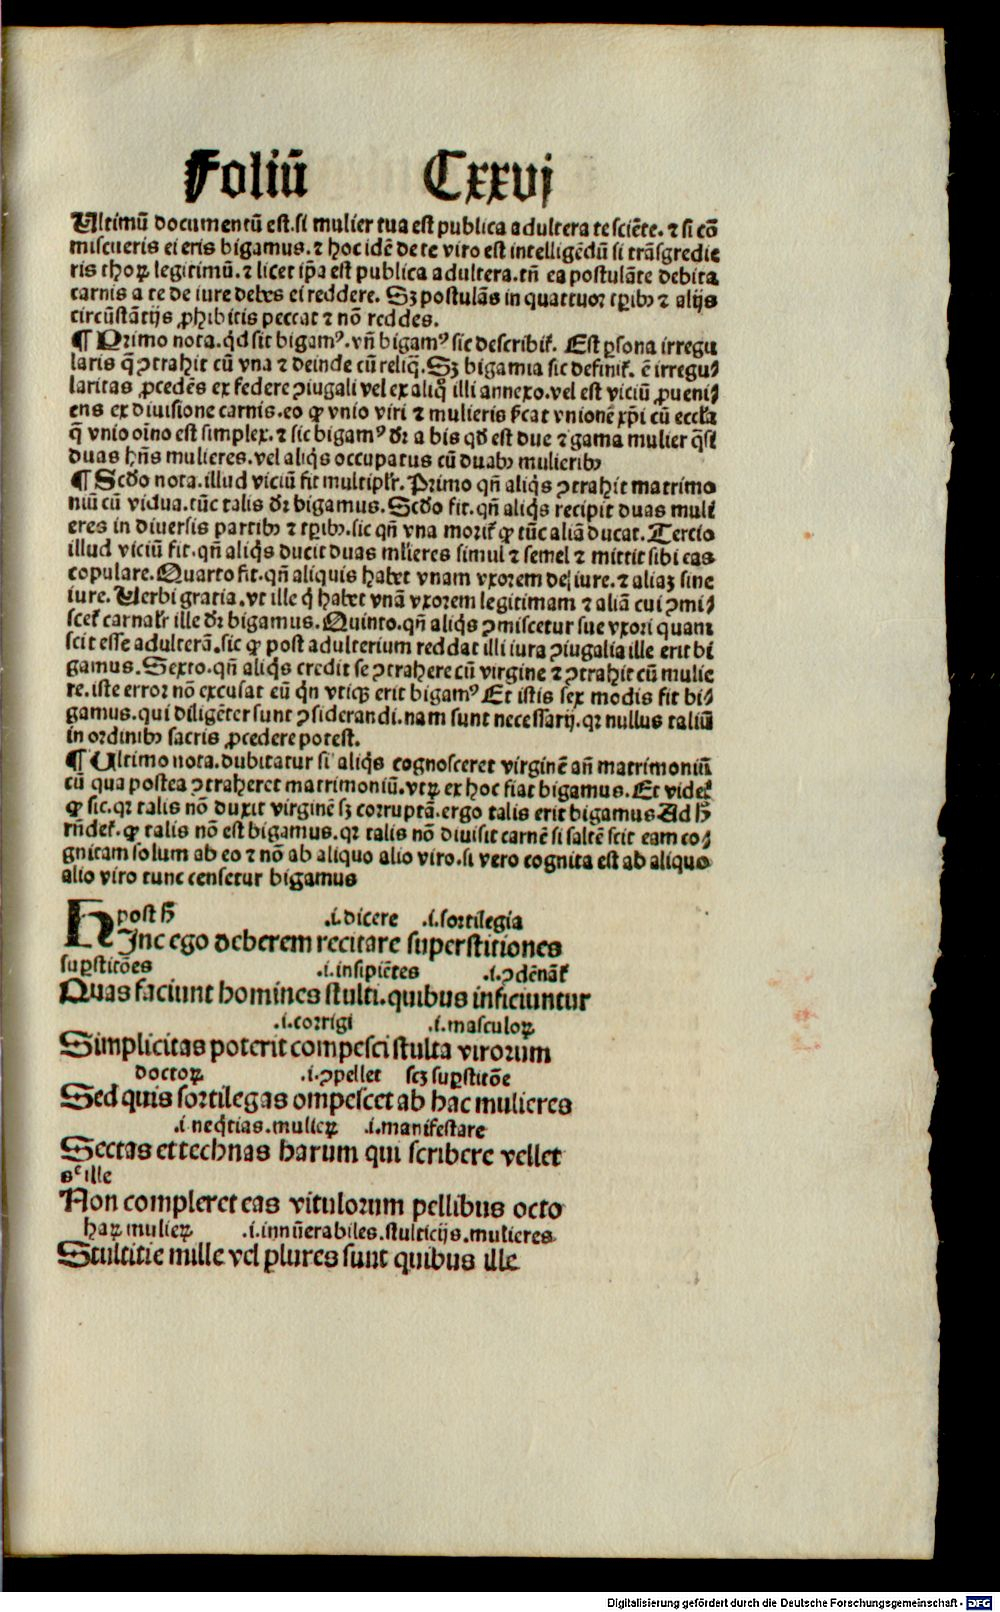 Foliū Cxxvj
Ultimū documentū est.si mulier tua est publica adultera te sciēte.⁊ si cō
miscueris ei eris bigamus.⁊ hoc idē de te viro est intelligēdū si trāsgredie
ris thoꝝ legitimū.⁊ licet ip̄a est publica adultera.tn̄ ea postulāte debita
carnis a te de iure debes ei reddere. Sꝫ postulās in quattuor tꝑibꝰ ⁊ alijs
circūstātijs ꝓhibitis peccat ⁊ nō reddes.
¶ Primo nota.qd̄ sit bigamꝰ.vn̄ bigamꝰ sic describit᷑. Est ꝑsona irregu
laris q̄ ꝯtrahit cū vna ⁊ deinde cū reliq̄. Sꝫ bigamia sic definit᷑. ē irregu⸗
laritas ꝓcedēs ex federe ꝯiugali vel ex aliq̊ illi annexo.vel est viciū ꝓueni⸗
ens ex diuisione carnis.eo ꝙ vnio viri ⁊ mulieris s̄cat vnionē xp̄i cū eccl̄ia
q̄ vnio oīno est simplex.⁊ sic bigamꝰ dr̄ a bis qd̄ est due ⁊ gama mulier q̄si
duas hn̄s mulieres.vel aliq̇s occupatus cū duabꝰ mulieribꝰ
¶ Scd̄o nota.illud viciū fit multipl'r. Primo qn̄ aliq̇s ꝯtrahit matrimo
niū cū vidua.tūc talis dr̄ bigamus. Scd̄o fit.qn̄ aliq̇s recipit duas muli
eres in diuersis partibꝰ ⁊ tꝑibꝰ.sic qn̄ vna morit᷑ ꝙ tūc aliā ducat. Tercio
illud viciū fit.qn̄ aliq̇s ducit duas ml̄ieres simul ⁊ semel ⁊ mittit sibi eas
copulare. Quarto fit.qn̄ aliquis habet vnam vxorem de iure.⁊ aliaꝫ sine
iure. Uerbi gratia.vt ille q̇ habet vnā vxorem legitimam ⁊ aliā cui ꝯmi⸗
scet᷑ carnal'r ille dr̄ bigamus. Quinto.qn̄ aliq̇s ꝯmiscetur sue vxori quam
scit esse adulterā.sic ꝙ post adulterium reddat illi iura ꝯiugalia ille erit bi
gamus. Sexto.qn̄ aliq̇s credit se ꝯtrahere cū virgine ⁊ ꝯtrahit cū mulie
re.iste error nō excusat eū q̇n vtiqꝫ erit bigamꝰ Et istis sex modis fit bi⸗
gamus.qui diligēter sunt ꝯsiderandi.nam sunt necessarij.qꝛ nullus taliū
in ordinibꝰ sacris ꝓcedere potest.
¶ Ultimo nota.dubitatur si aliq̇s cognosceret virginē an̄ matrimoniū
cū qua postea ꝯtraheret matrimoniū.vtꝝ ex hoc fiat bigamus. Et videt᷑
ꝙ sic.qꝛ talis nō duxit virginē sꝫ corruptā.ergo talis erit bigamus Ad h̄
rn̄det᷑. ꝙ talis nō est bigamus.qꝛ talis nō diuisit carnē si saltē scit eam co⸗
gnitam solum ab eo ⁊ nō ab aliquo alio viro.si vero cognita est ab aliquo
alio viro tunc censetur bigamus
post h̄ .i.dicere .i.sortilegia
HInc ego deberem recitare superstitiones
suꝑstitōes .i.insipiētes .i.ꝯdēnāt᷑
Quas faciunt homines stulti.quibus inficiuntur
.i.corrigi .i.masculoꝝ
Simplicitas poterit compesci stulta virorum
doctoꝝ .i.ꝯpellet scꝫ suꝑstitōe
Sed quis sortilegas ompescet ab hac mulieres
.i neq̇tias.mulieꝝ .i.manifestare
Sectas et technas harum qui scribere vellet
sᶜ ille
Non compleret eas vitulorum pellibus octo
haꝝ mulieꝝ .i.innūerabiles.stulticijs.mulieres
Stultitie mille vel plures sunt quibus ille
Digitalisierung gefördert durch die Deutsche Forschungsgemeinschaft - DFG